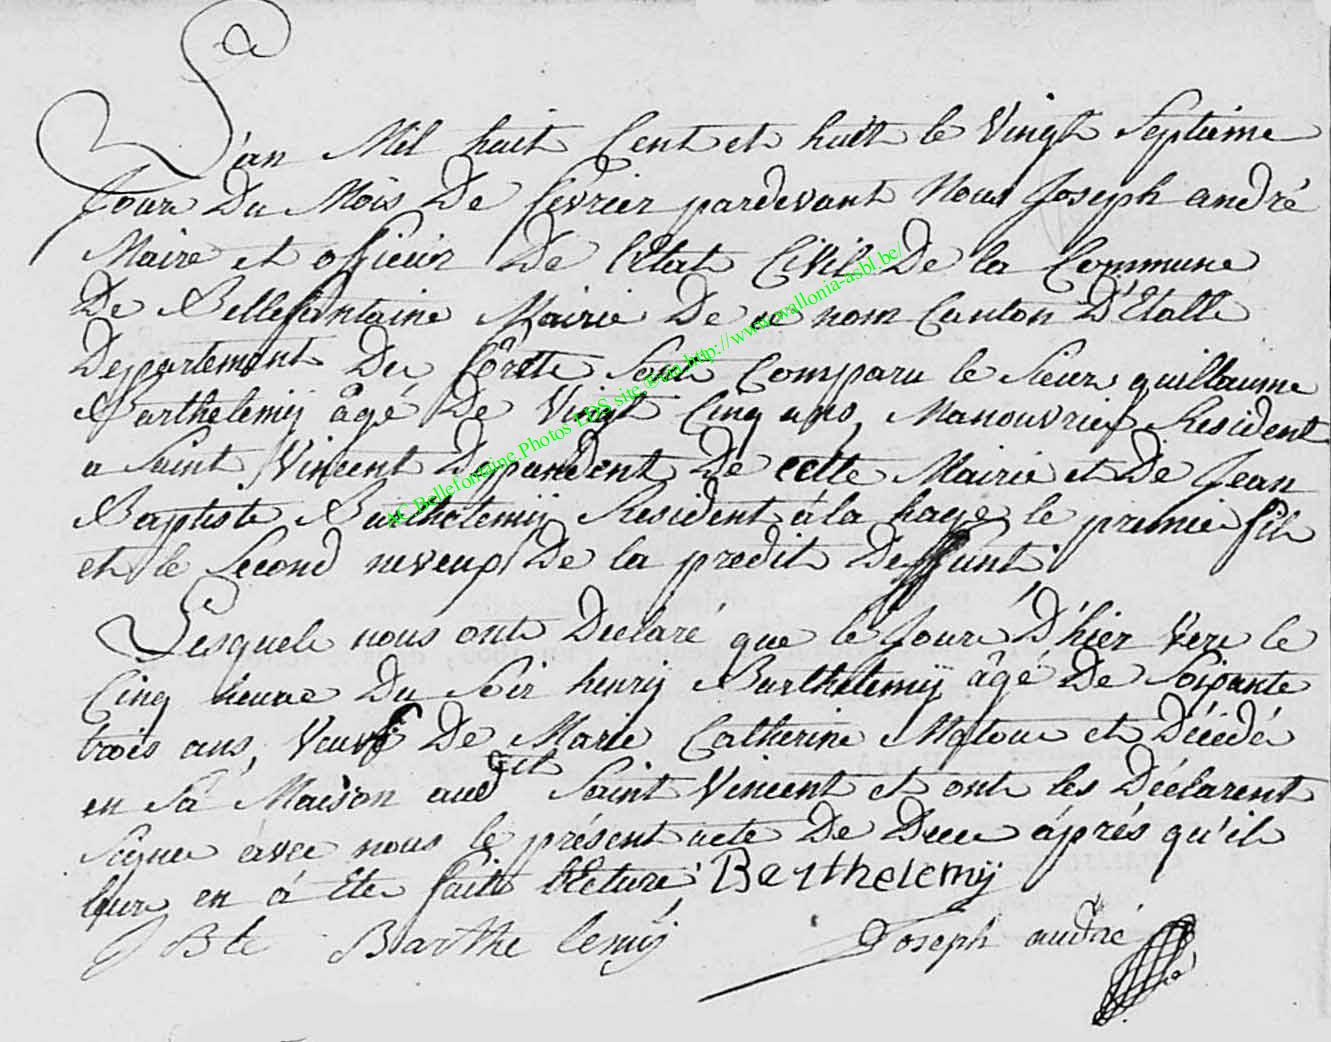 L'an Mil huit Cent et huit le Vingt Septieme
Jour Du Mois De fevrier pardevant Nous Joseph andré
Maire et officier De l'Etat Civil De la Commune
De Bellefontaine Mairie De ce nom Canton D'Etalle
Departement Des forêts Sont Comparu le Sieur guillaume
Barthelemÿ âgé De Vingt Cinq ans, Manouvrier Resident
a Saint Vincent Dépendent De cette Mairie et De Jean
Baptiste Barthelemÿ Resident á la hage le premier fils
et le Second neveux De la predit Deffunt.
Lesquels nous ont Declaré que le Jour D'hier Vere le
Cinq heure Du Soir henry Barthelemÿ âgé De Soixante
trois ans, Veuf De Marie Catherine Matoue et Décédé
en Sa Maison audit Saint Vincent et ont les Déclarent
Signer avec nous le présent acte De Dece après qu'il
leur en á Ete faite lecture. Barthelemÿ
J Bte Barthelemÿ Joseph andré
AC Bellefontaine Photos LDS site from http://www.wallonia-asbl.be/